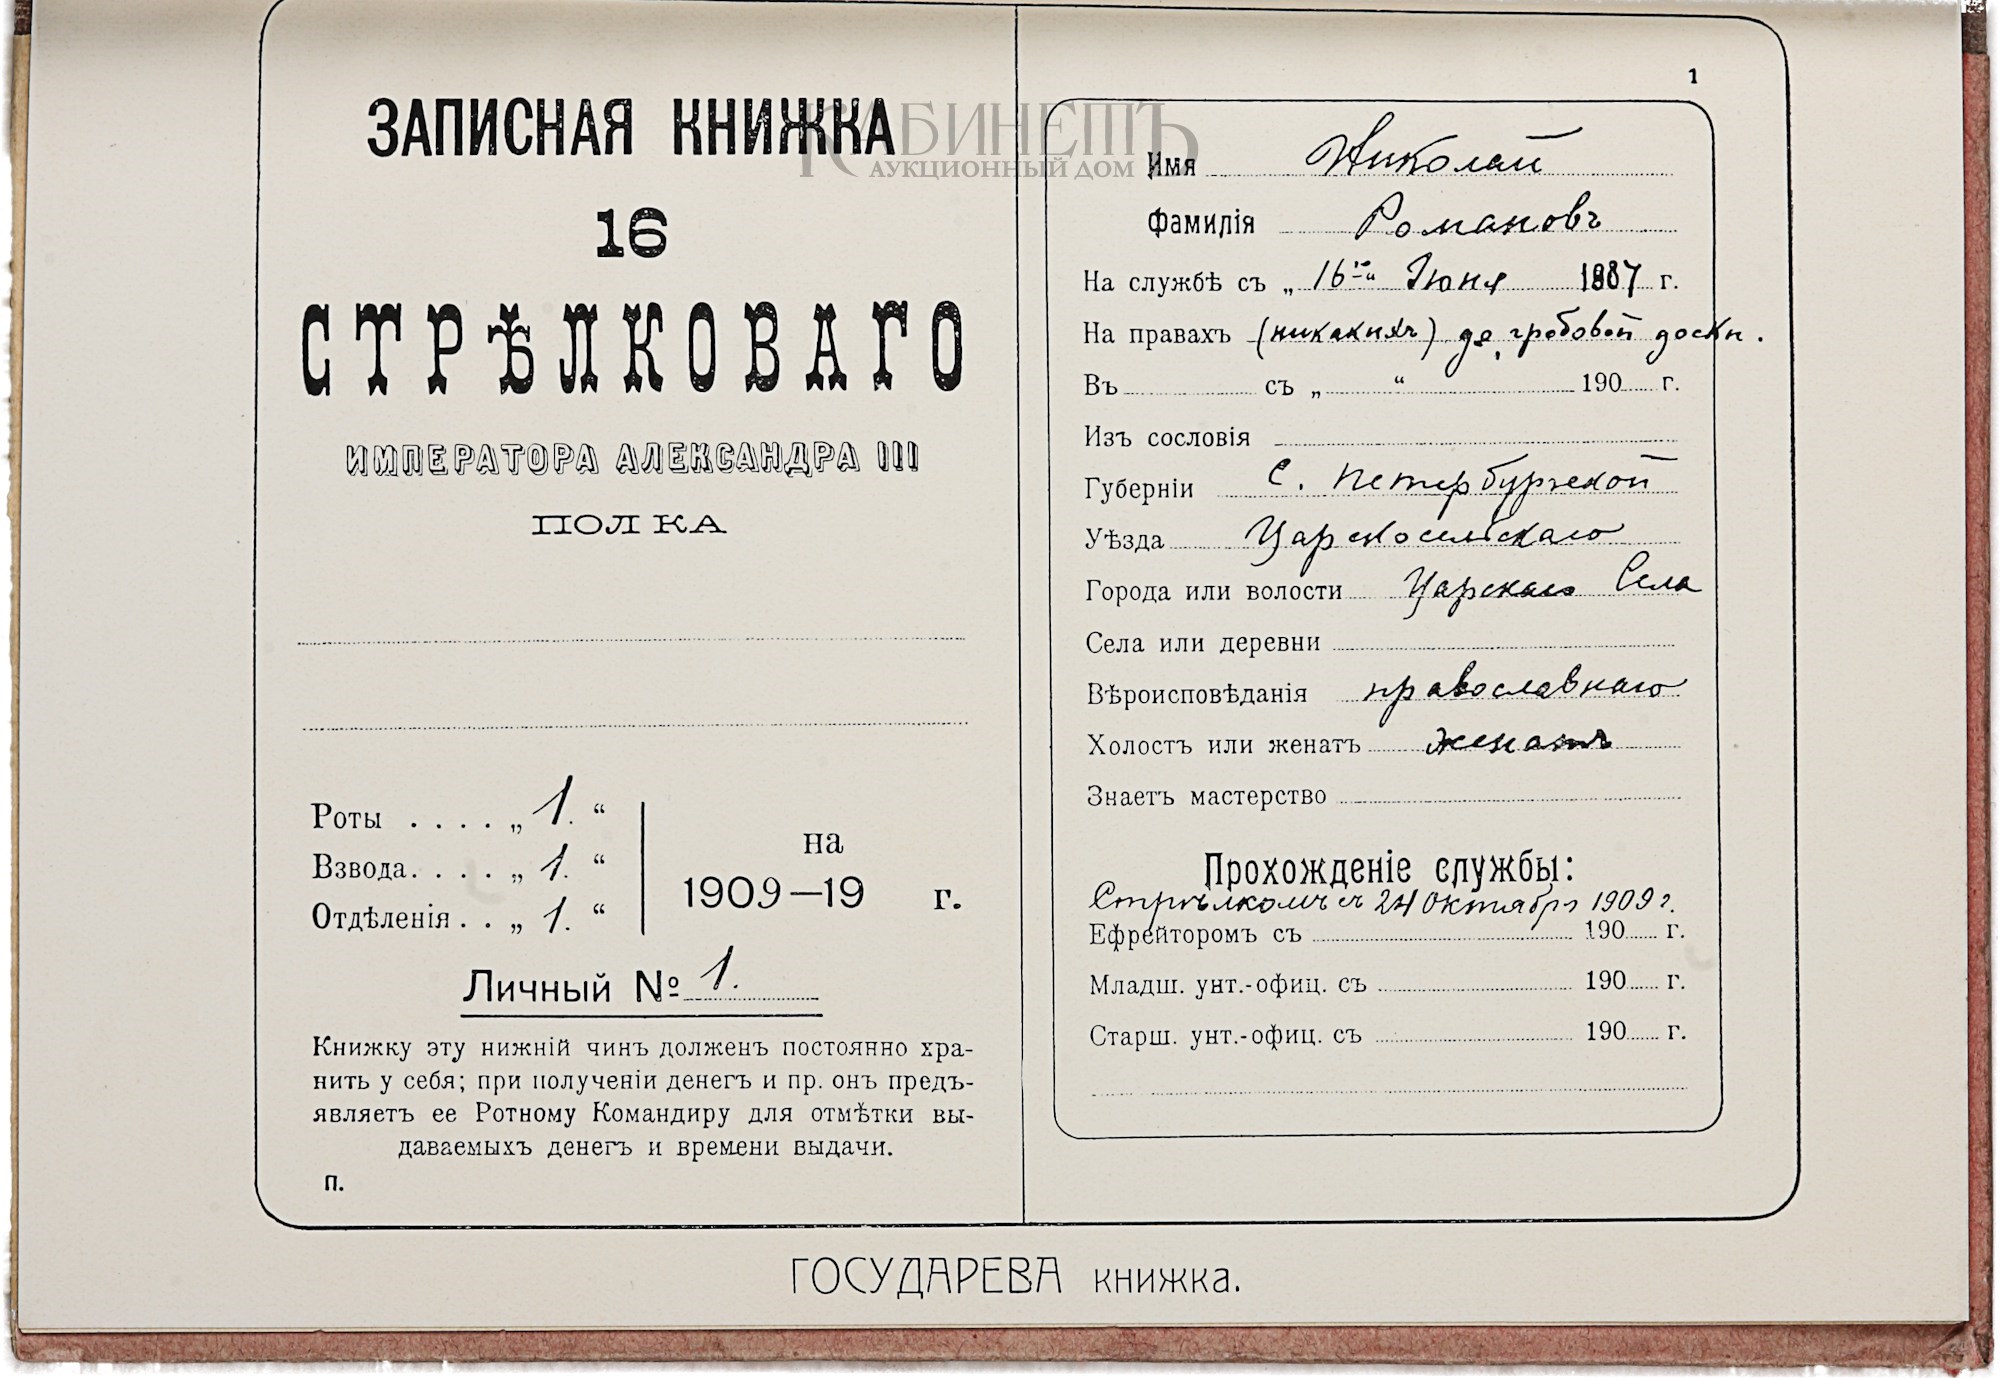 ЗАПИСНАЯ КНИЖКА
16
СТРѢЛКОВАГО
ИМПЕРАТОРА АЛЕКСАНДРА III
ПОЛКА
Роты . . . . „ 1. “
Взвода. . . . „ 1. “
Отдѣленія . . „ 1. “
на
1909—19 г.
Личный № 1.
Книжку эту нижній чинъ долженъ постоянно хра-
нить у себя; при полученіи денегъ и пр. онъ предъ-
являетъ ее Ротному Командиру для отмѣтки вы-
даваемыхъ денегъ и времени выдачи.
П.
КАБИНЕТЪ
АУКЦИОННЫЙ ДОМ
1
Имя Николай
Фамилія Романовъ
На службѣ съ „ 16го “ Іюня 1887 г.
На правахъ (никакихъ) до гробовой доски.
Въ съ „ “ 190 г.
Изъ сословія
Губерніи С. Петербургской
Уѣзда Царскосельскаго
Города или волости Царскаго Села
Села или деревни
Вѣроисповѣданія православнаго
Холостъ или женатъ женатъ
Знаетъ мастерство
Прохожденіе службы:
Стрѣлкомъ съ 24 Октября 1909 г.
Ефрейторомъ съ 190 г.
Младш. унт.-офиц. съ 190 г.
Старш. унт.-офиц. съ 190 г.
ГОСУДАРЕВА книжка.